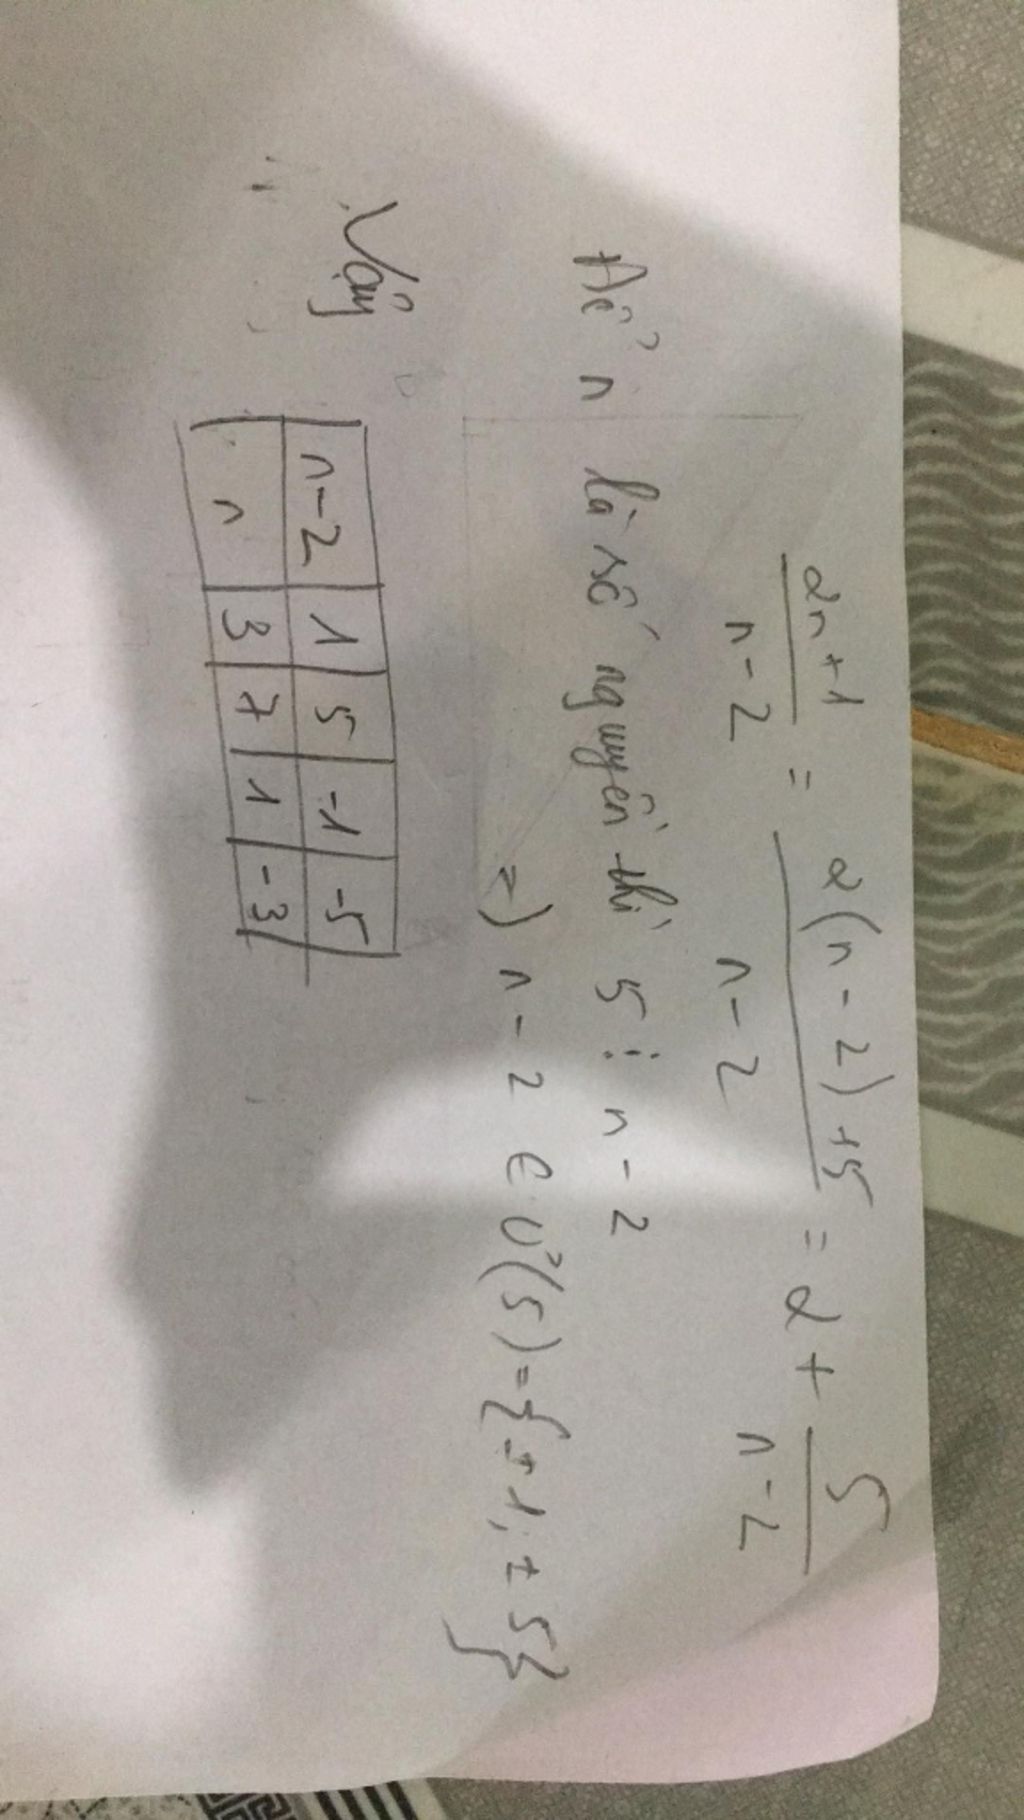 2n+1 / n-2 = 2(n-2)+5 / n-2 = 2 + 5 / n-2
Để n là số nguyên thì 5 ⋮ n-2
=) n-2 ∈ Ư(5) = {±1; ±5}
Vậy
n-2 | 1 | 5 | -1 | -5
n | 3 | 7 | 1 | -3